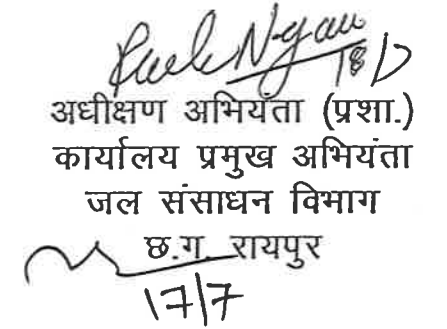 18/7
अधीक्षण अभियंता (प्रशा.)
कार्यालय प्रमुख अभियंता
जल संसाधन विभाग
छ.ग. रायपुर
17/7